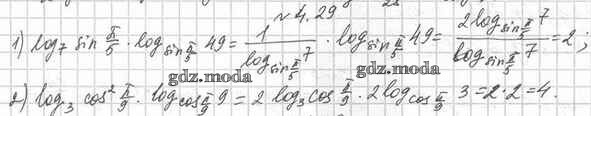 № 4.29
1) log₇ sin π/5 · log_{sin π/5} 49 = 1/(log_{sin π/5} 7) · log_{sin π/5} 49 = (2 log_{sin π/5} 7)/(log_{sin π/5} 7) = 2 ;
gdz.moda gdz.moda gdz.moda
2) log₃ cos² π/9 · log_{cos π/9} 9 = 2 log₃ cos π/9 · 2 log_{cos π/9} 3 = 2 · 2 = 4.
gdz.moda gdz.moda